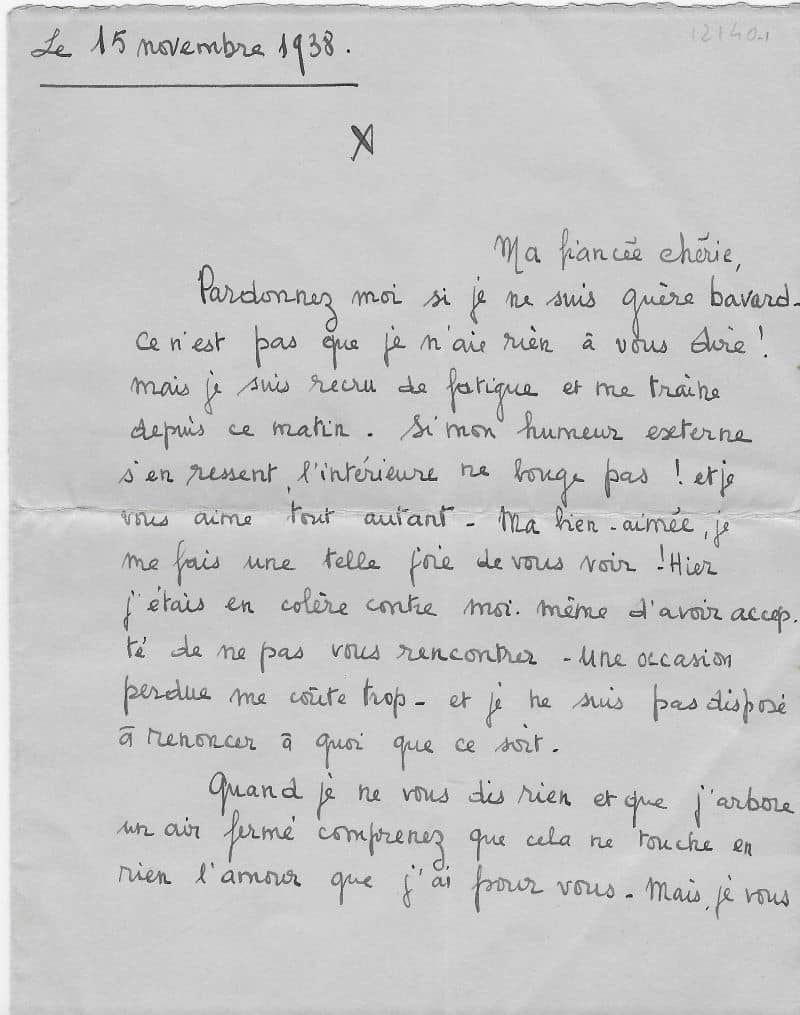 Le 15 novembre 1938.
12140-1
X
Ma fiancée chérie,
Pardonnez moi si je ne suis guère bavard-
Ce n'est pas que je n'aie rien à vous dire !
mais je suis recru de fatigue et me traîne
depuis ce matin. Si mon humeur externe
s'en ressent, l'intérieure ne bouge pas ! et je
vous aime tout autant - Ma bien-aimée, je
me fais une telle joie de vous voir ! Hier
j'étais en colère contre moi-même d'avoir accep-
té de ne pas vous rencontrer - Une occasion
perdue me coûte trop - et je ne suis pas disposé
à renoncer à quoi que ce soit.
Quand je ne vous dis rien et que j'arbore
un air fermé comprenez que cela ne touche en
rien l'amour que j'ai pour vous - Mais, je vous